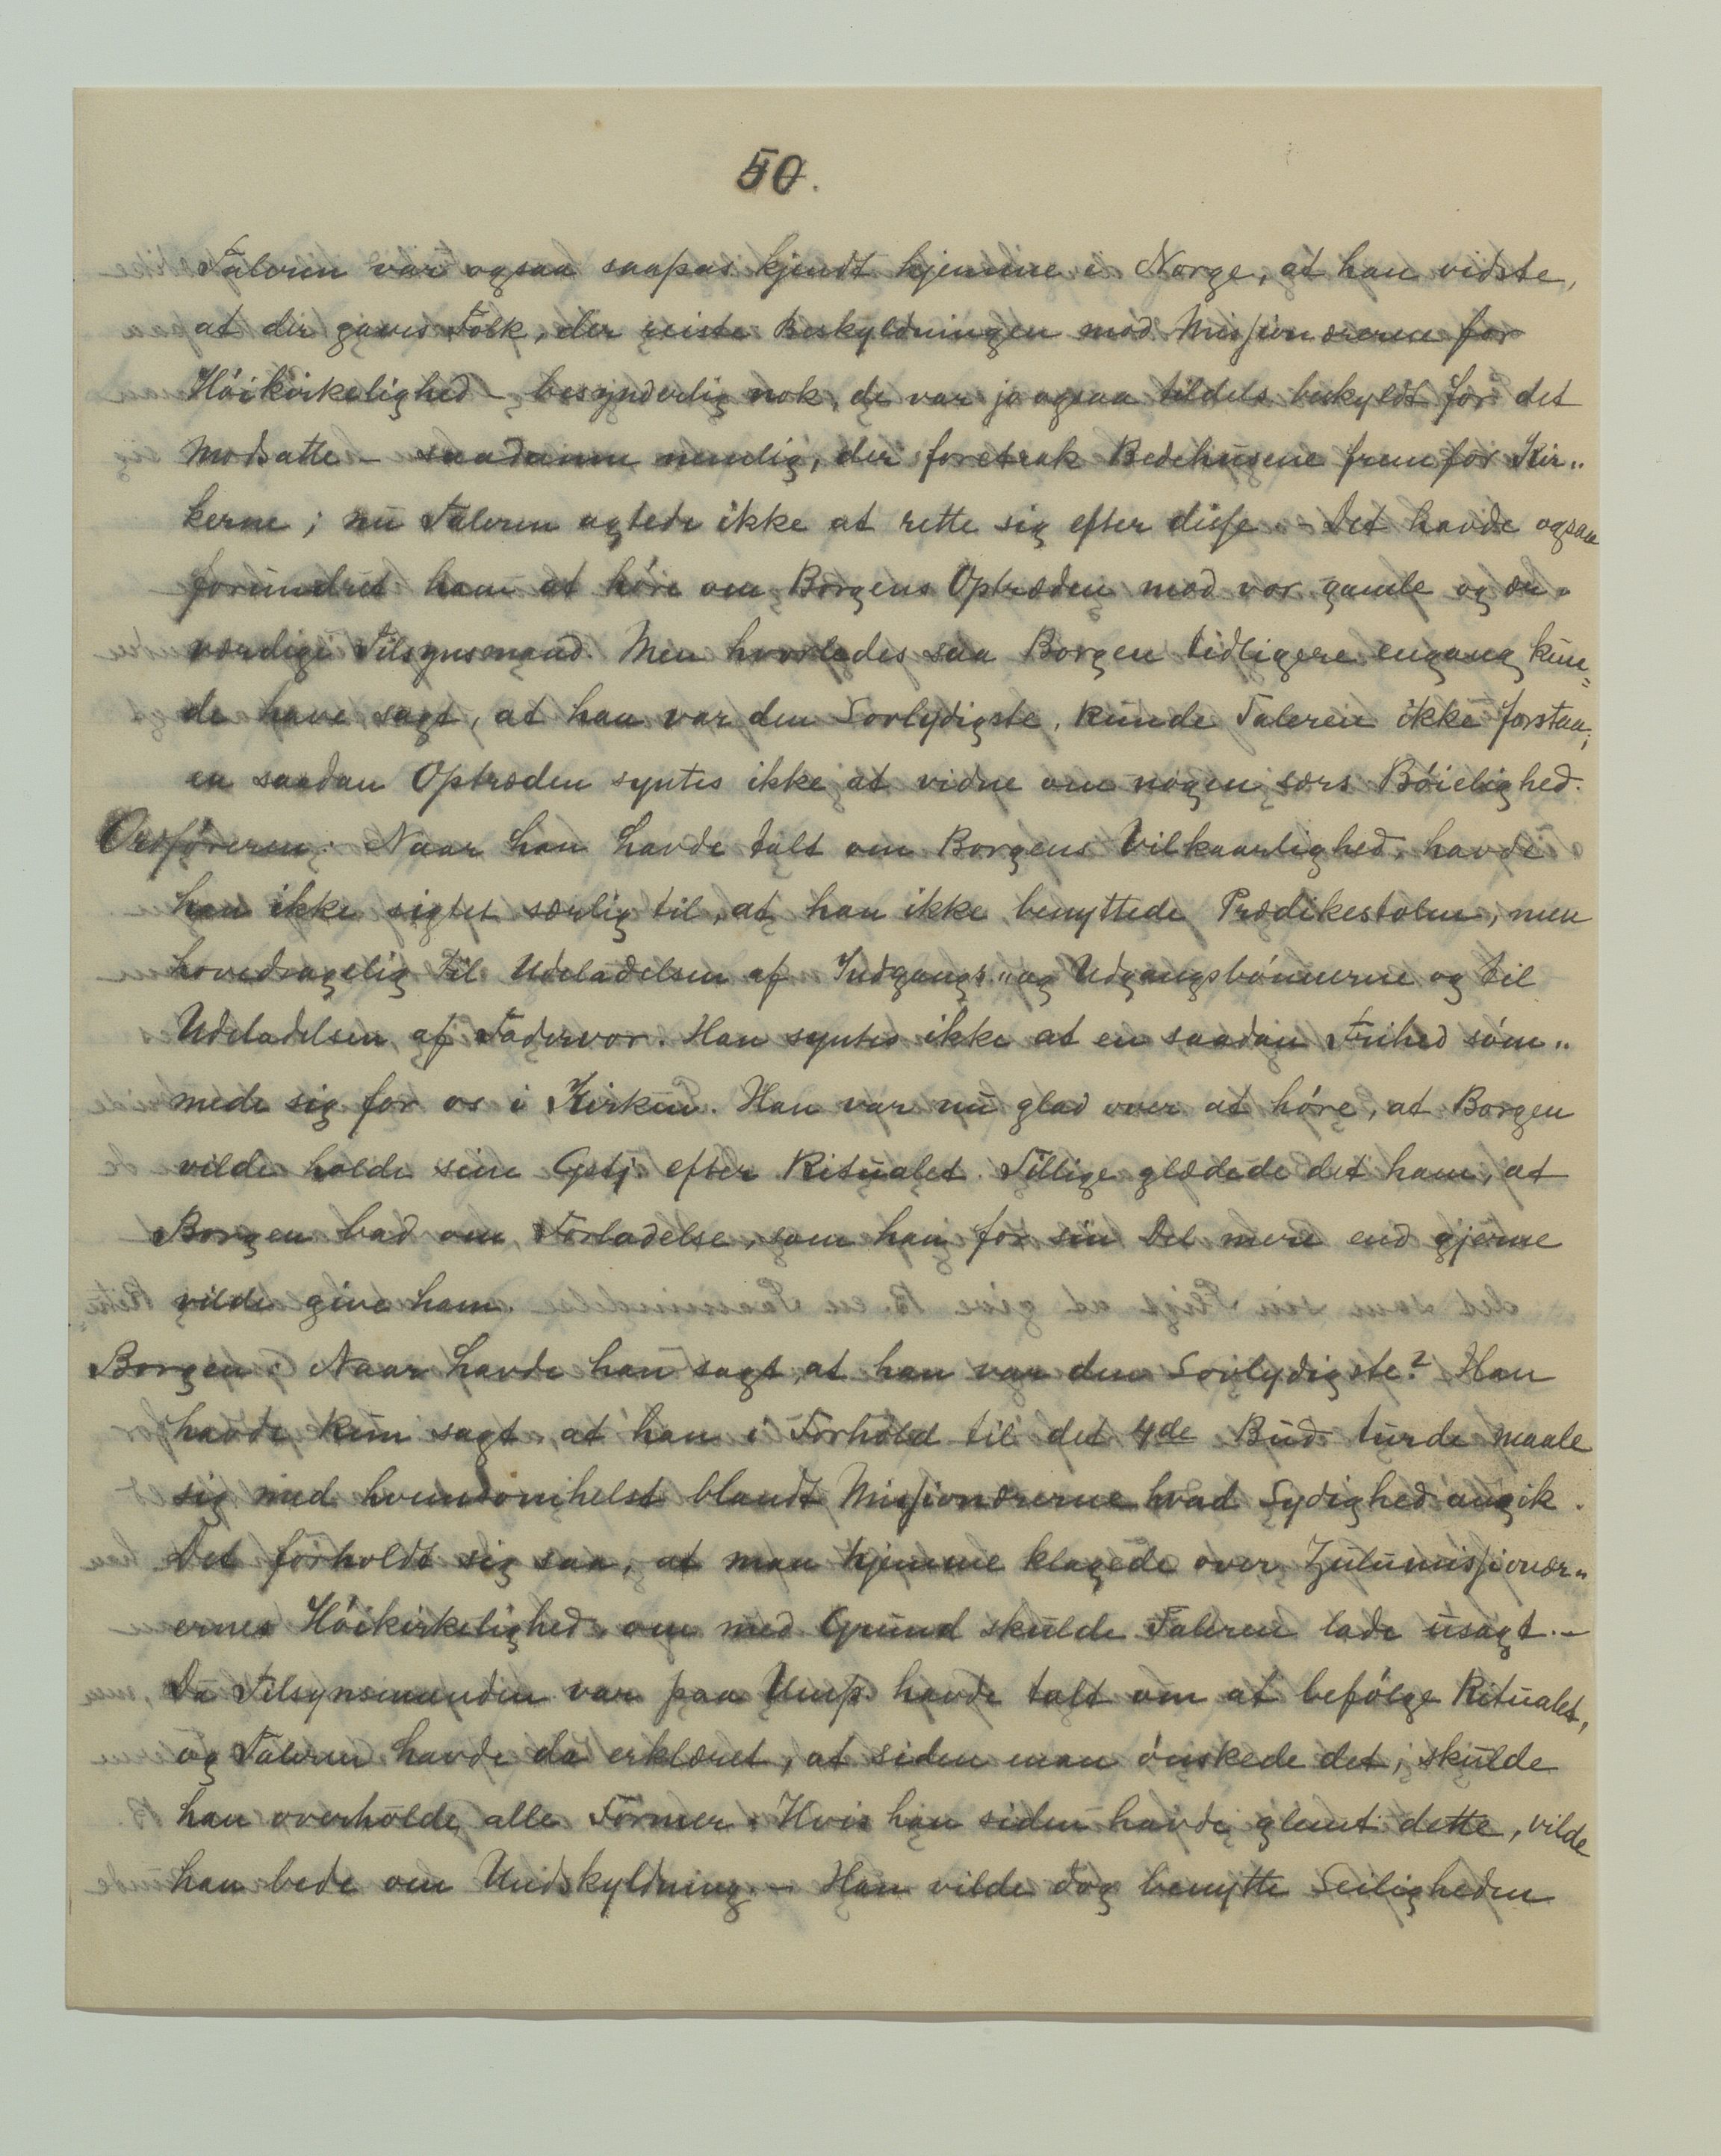 50.
Taleren var ogsaa saapas kjendt hjemme i Norge, at han vidste,
at der gaves Folk, der reiste Beskyldningen mod Missionærerne for
Høikirkelighed – besynderlig nok, de var jo ogsaa tildels beskyldt for det
modsatte – saadanne nemlig, der foretrak Bedehusene fremfor Kir„
kerne; nu Taleren agtede ikke at rette sig efter disse. – Det havde ogsaa
forundret ham at høre om Borgens Optræden mod vor gamle og ær„
værdige Tilsynsmand. Men hvorledes saa Borgen tidligere engang kun„
de have sagt, at han var den Lovlydigste, kunde Taleren ikke forstaa;
en saadan Optræden syntes ikke at vidne om nogen særs Bøielighed.
Ordføreren: Naar han havde talt om Borgens Vilkaarlighed, havde
han ikke sigtet særlig til, at han ikke benyttede Prædikestolen, men
hovedsagelig til Udeladelsen af Indgangs„ og Udgangsbønnerne og til
Udeladelsen af Fadervor. Han syntes ikke at en saadan Frihed søm„
mede sig for os i Kirken. Han var nu glad over at høre, at Borgen
vilde holde sine Gstj efter Ritualet. Tillige glædede det ham, at
Borgen bad om Forladelse, som han for sin Del mere end gjerne
vilde give ham.
Borgen: Naar havde han sagt, at han var den Lovlydigste? Han
havde kun sagt, at han i Forhold til det 4de Bud turde maale
sig med hvemsomhelst blandt Missionærerne hvad Lydighed angik.
Det forholdt sig saa, at man hjemme klagede over Zulumissionær„
ernes Høikirkelighed, om med Grund skulde Taleren lade usagt. –
Da Tilsynsmanden var paa Ump. havde talt om at befølge Ritualet,
og Taleren havde da erklæret, at siden man ønskede det, skulde
han overholde alle Former. Hvis han siden havde glemt dette, vilde
han bede om Undskyldning. – Han vilde dog benytte Leiligheden